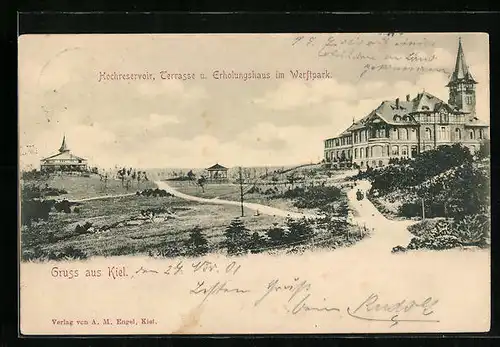 Hochreservoir, Terrasse u. Erholungshaus im Werftpark.
Gruss aus Kiel, den 24 Nov. 01
Besten Gruß
Dein Rudolf
Verlag von A. M. Engel, Kiel.